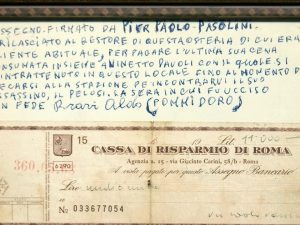 ASSEGNO FIRMATO DA PIER PAOLO PASOLINI.
RILASCIATO AL GESTORE DI QUESTA OSTERIA DI CUI ERA
CLIENTE ABITUALE, PER PAGARE L'ULTIMA SUA CENA
CONSUMATA INSIEME A NINETTO DAVOLI CON IL QUALE SI
INTRATTENNE IN QUESTO LOCALE FINO AL MOMENTO DI
RECARSI ALLA STAZIONE PER INCONTRARVI IL SUO
ASSASSINO, IL PELOSI. LA SERA IN CUI FU UCCISO
IN FEDE Aldo (POMMIDORO)
15 Lit. 11.000
CASSA DI RISPARMIO DI ROMA
Agenzia n. 15 - via Giacinto Carini, 58/b - Roma
360.0
6290
A vista pagate per questo Assegno Bancario
Lire
e in
No 033677054